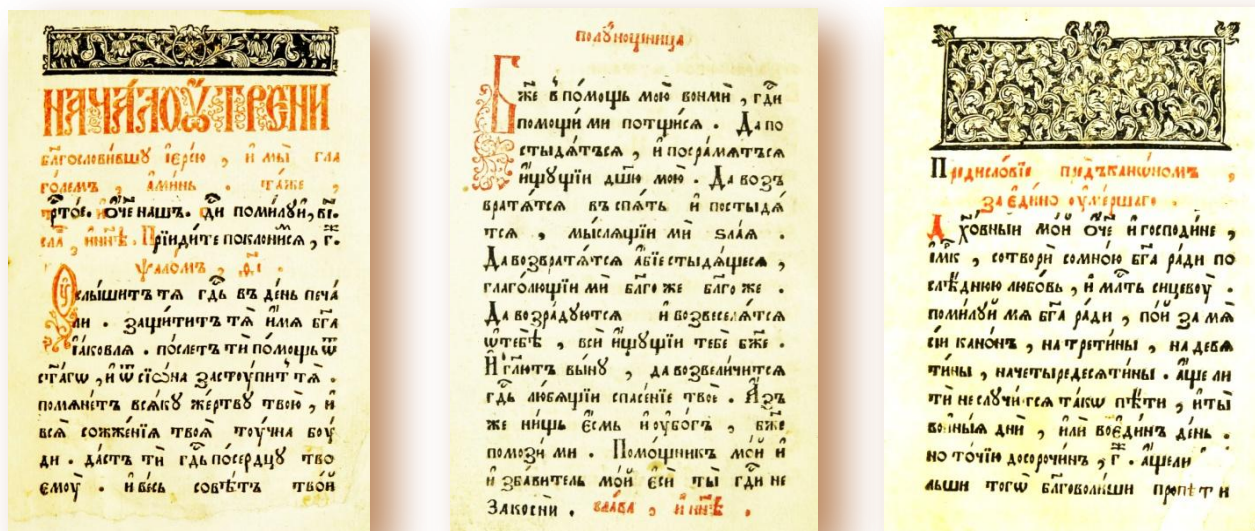 НАЧА́ЛО Ѹ҆́ТРЕНИ
бл҃гослови́вшꙋ і҆ере́ю , и҆ мы̀ гла
го́лемъ , а҆ми́нь . та́же ,
трⷭ҇то́е . ѻ҆́ч҃е нашъ . гдⷭ҇и поми́лꙋй , в҃і .
сла́ , и҆ ны́нѣ . Прїиди́те поклони́сѧ , г҃ .
ѱало́мъ , ѳ҃і .
Оу҆слы́шитъ тѧ гдⷭ҇ь въ де́нь печа́
ли . защи́титъ тѧ̀ и҆́мѧ бг҃а
і҆а́ковлѧ . по́слетъ ти по́мощь ѿ
ст҃а́гѡ , и҆ ѿ сїѡ́на застоу́питъ тѧ̀ .
помѧне́тъ всѧ́кꙋ же́ртвꙋ твою̀ , и҆
всѧ̀ сожже́нїѧ твоѧ̀ тоу́чна боу́
ди . да́стъ ти гдⷭ҇ь по се́рдцꙋ тво
емоу̀ . и҆ ве́сь совѣ́тъ тво́й
полꙋ́нощница
Бж҃е в по́мощь мою̀ вонмѝ , гдⷭ҇и
помощи́ ми потщи́сѧ . Да по
стыдѧ́тъсѧ , и҆ посра́мѧтъсѧ
и҆́щꙋщїи дш҃ю мою̀ . Да возъ
вратѧ́тсѧ въ спѧ́ть и҆ постыдѧ́
тсѧ , мы́слѧщїи ми ѕла́ѧ .
Да возвратѧ́тсѧ а҆́бїе стыдѧ́щесѧ ,
глаго́лющїи ми бл҃гоже бл҃гоже .
Да возра́дꙋютсѧ и҆ возвеселѧ́тсѧ
ѡ҆ тебѣ̀ , вси и҆́щꙋщїи тебѐ бж҃е .
И҆ гл҃ютъ вы́нꙋ , да возвели́читсѧ
гдⷭ҇ь лю́бѧщїи спасе́нїе твоѐ . А҆́зъ
же ни́щь є҆́смь и҆ оу҆бо́гъ , бж҃е
помози́ ми . Помо́щникъ мо́й и҆
и҆зба́витель мо́й є҆сѝ ты̀ гдⷭ҇и не
Закоснѝ . сла́ва , и҆ ны́нѣ .
Предисло́вїе пред̾ кано́номъ ,
за є҆ди́но оу҆ме́ршаго .
Дꙋхо́вныи мо́й ѻ҆́ч҃е и҆ господи́не ,
и҆́мⷬ҇къ , сотворѝ со мно́ю бг҃а ра́ди по
слѣ́днюю любо́вь , и҆ мл҃ть сицевоу̀ .
поми́лꙋй мѧ бг҃а ра́ди , по́й за мѧ̀
сїй кано́нъ , на трети́ны , на девѧ
ти́ны , на четыредесѧти́ны . а҆́ще ли
ти не слꙋчи́тсѧ та́кѡ пѣ́ти , и҆ ты̀
во и҆ны́ѧ днѝ , и҆лѝ во є҆ди́нъ де́нь .
но то́чїю до сорочи́нъ , г҃ . а҆́ще ли
льши тогѡ̀ бл҃гово́лиши пропѣ́ти